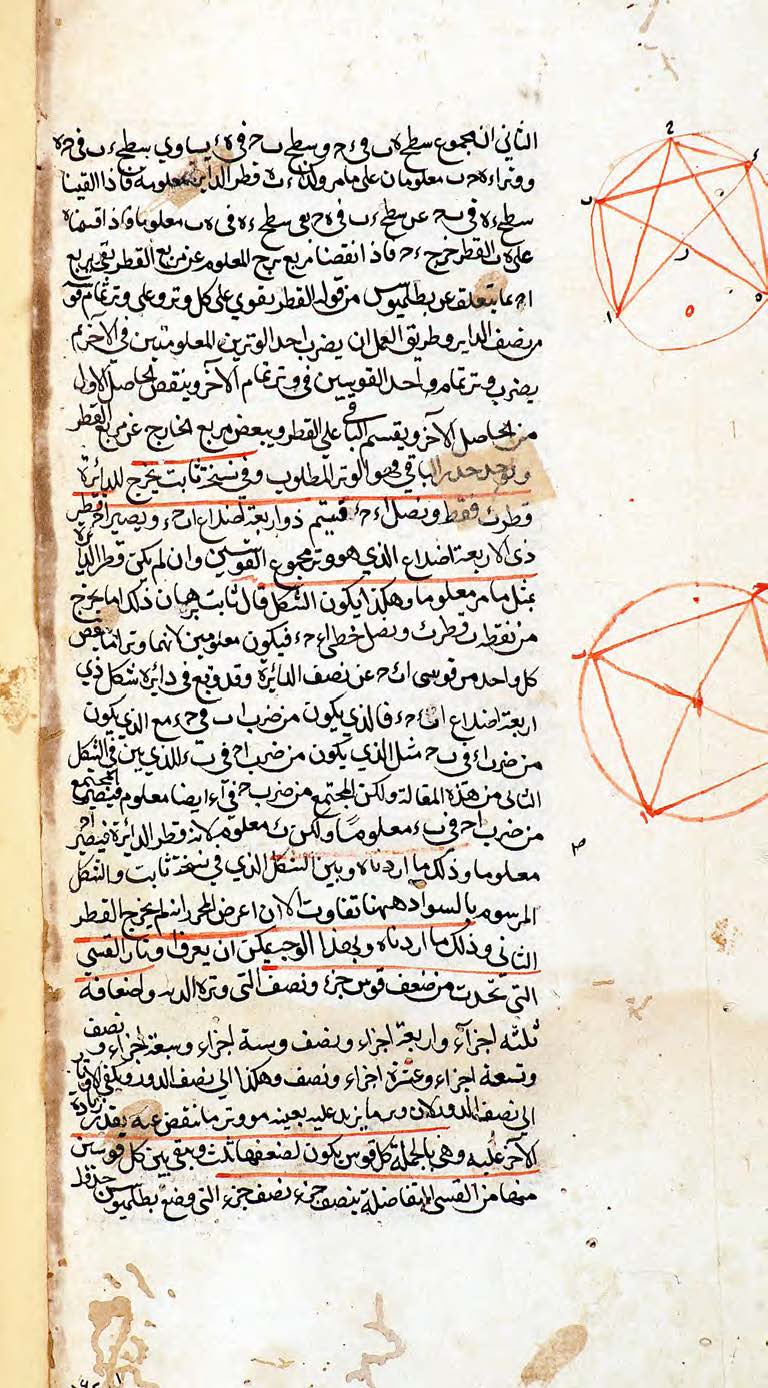 الثاني ان مجموع سطح ه ب في ء ح وسطح ب ح في ه ء يساوي سطح ء ب في ح ه
ووتر ا ء ح ب معلومان على ما مر ولكن ء ب قطر الدايرة معلومة فاذا القينا
سطح ء ه في ب ح عن سطح ء ب في ه ح بقي سطح ء ه في ه ب معلوما واذا قسمناه
على ه ب القطر خرج ء ح فاذا نقصنا مربع ء ح المعلوم عن مربع القطر بقي مربع
ا ح مما يتعلق عن بطلميوس من قوله القطر يقوى على كل وتر وعلى وتر تمام قوسه
من نصف الداير وطريق العمل ان يضرب احد الوترين المعلومتين في الآخر ثم
يضرب وتر تمام واحد القوسين في وتر تمام الآخر وينقص الحاصل الاول
من الحاصل الآخر ويقسم الباقي على القطر وينقص مربع الخارج عن مربع القطر
ويوخذ جذر الباقي فهو الوتر المطلوب وفي نسخة ثابت يخرج للدائرة
قطر ب فقط ونصل ا ء ح ء فيتم ذو اربعة اضلاع ا ب ح ء ويصير ا ح قطر
ذي الاربعة اضلاع الذي هو وتر مجموع القوسين وان لم يكن قطر الدائرة
بمثل ما مر معلوما وهكذا يكون الشكل قال ثابت برهان ذلك اما يخرج
من نقطة ب قطر ب ء ونصل خطي ا ء ح ء فيكون معلومين لانهما وترا ما ينقص
كل واحد من قوسي ا ب ب ح عن نصف الدائرة وقد وقع في دائرة شكل ذي
اربعة اضلاع ا ب ح ء فالذي يكون من ضرب ا ب في ح ء مع الذي يكون
من ضرب ا ء في ب ح مثل الذي يكون من ضرب ا ح في ب ء للذي بين في الشكل
الثاني من هذه المقالة ولكن المجتمع من ضرب ب ح في آء ايضا معلوم فيصير المجتمع
من ضرب ا ح في ب ء معلوما ولكن ب ء معلوم لانه قطر الدائرة فيصير ا ح
معلوما وذلك ما اردناه وبين الشكل الذي في نسخة ثابت والشكل
المرسوم بالسواد ههنا تفاوت الا ان اعرض المحرر انه لم يخرج القطر
الثاني وذلك ما اردناه وبهذا الوجه يمكن ان يعرف اوتار القسي
التي تحدث من ضعف قوس جزء ونصف التي وتره الدـ واضعافه
ثلثه اجزآء واربعة اجزاء ونصف وستة اجزاء وسبعة اجزاء ونصف
وتسعة اجزاء وعشرة اجزاء ونصف وهكذا الى نصف الدور ويكفي الاوتار
الى نصف الدور لان وتر ما يزيد عليه بعينه هو وتر ما ينقص عنه بقدر زيادة
الآخر عليه وهي بالجملة كل قوس يكون لضعفها ثلث وبقي بين كل قوسين
منها من القسي المتفاضلة بنصف جزء نصف جزء التي وضع بطلميوس جذولـ